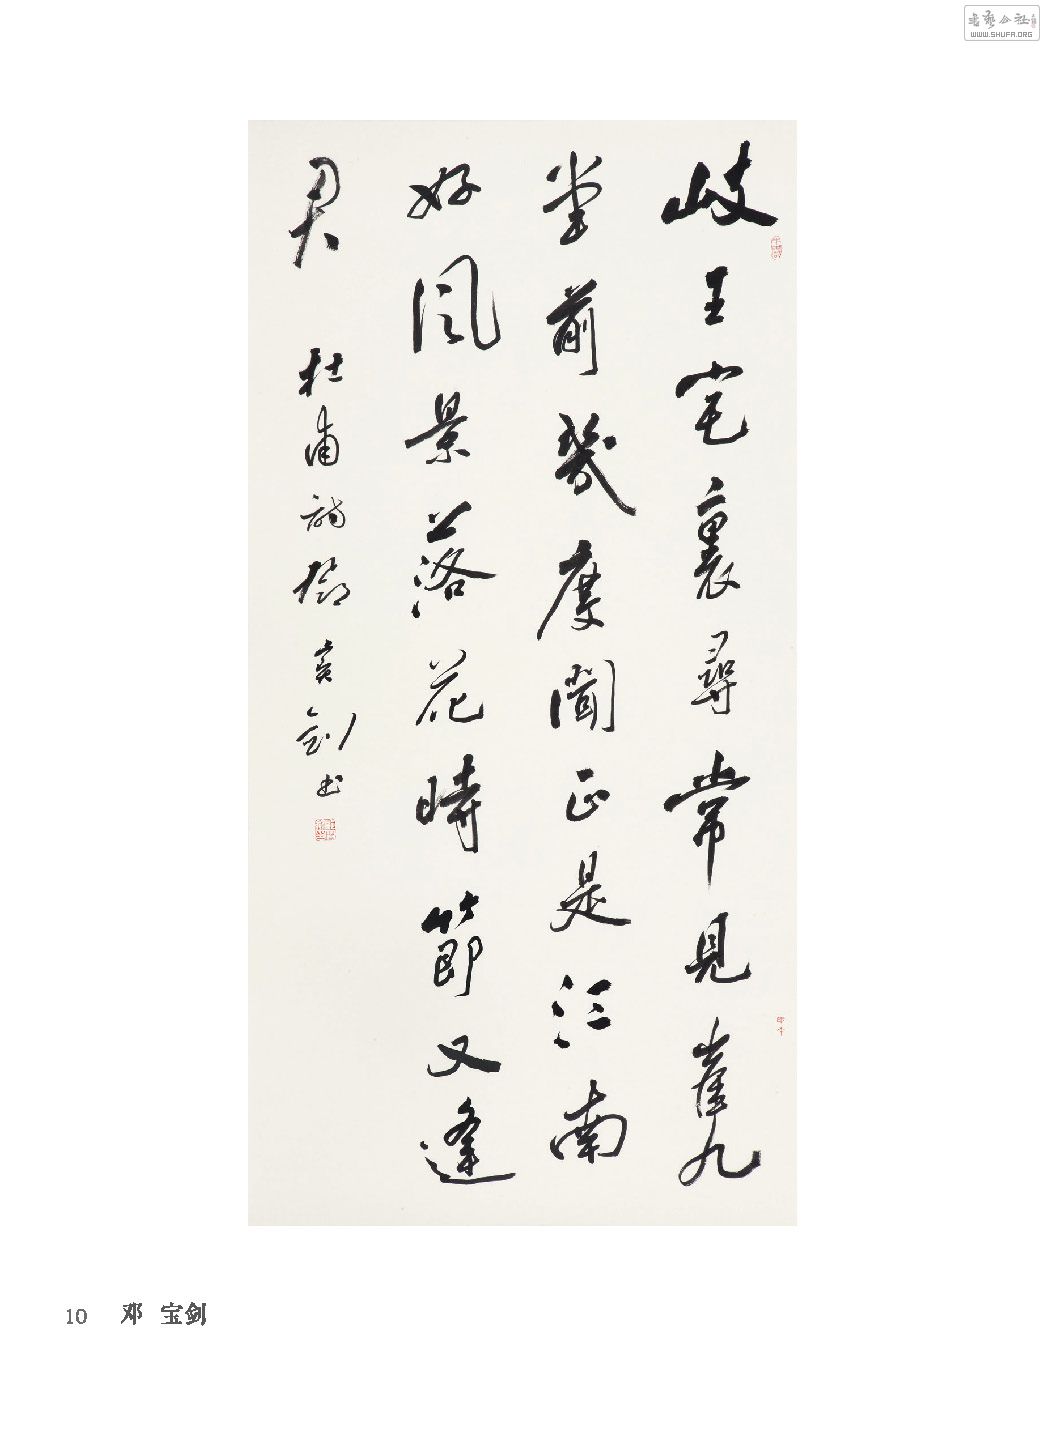 书艺公社
WWW.SHUFA.ORG
岐王宅裏尋常見崔九
堂前幾度聞正是江南
好風景落花時節又逢
君 杜甫詩 鄧寶劍书
10 邓 宝剑